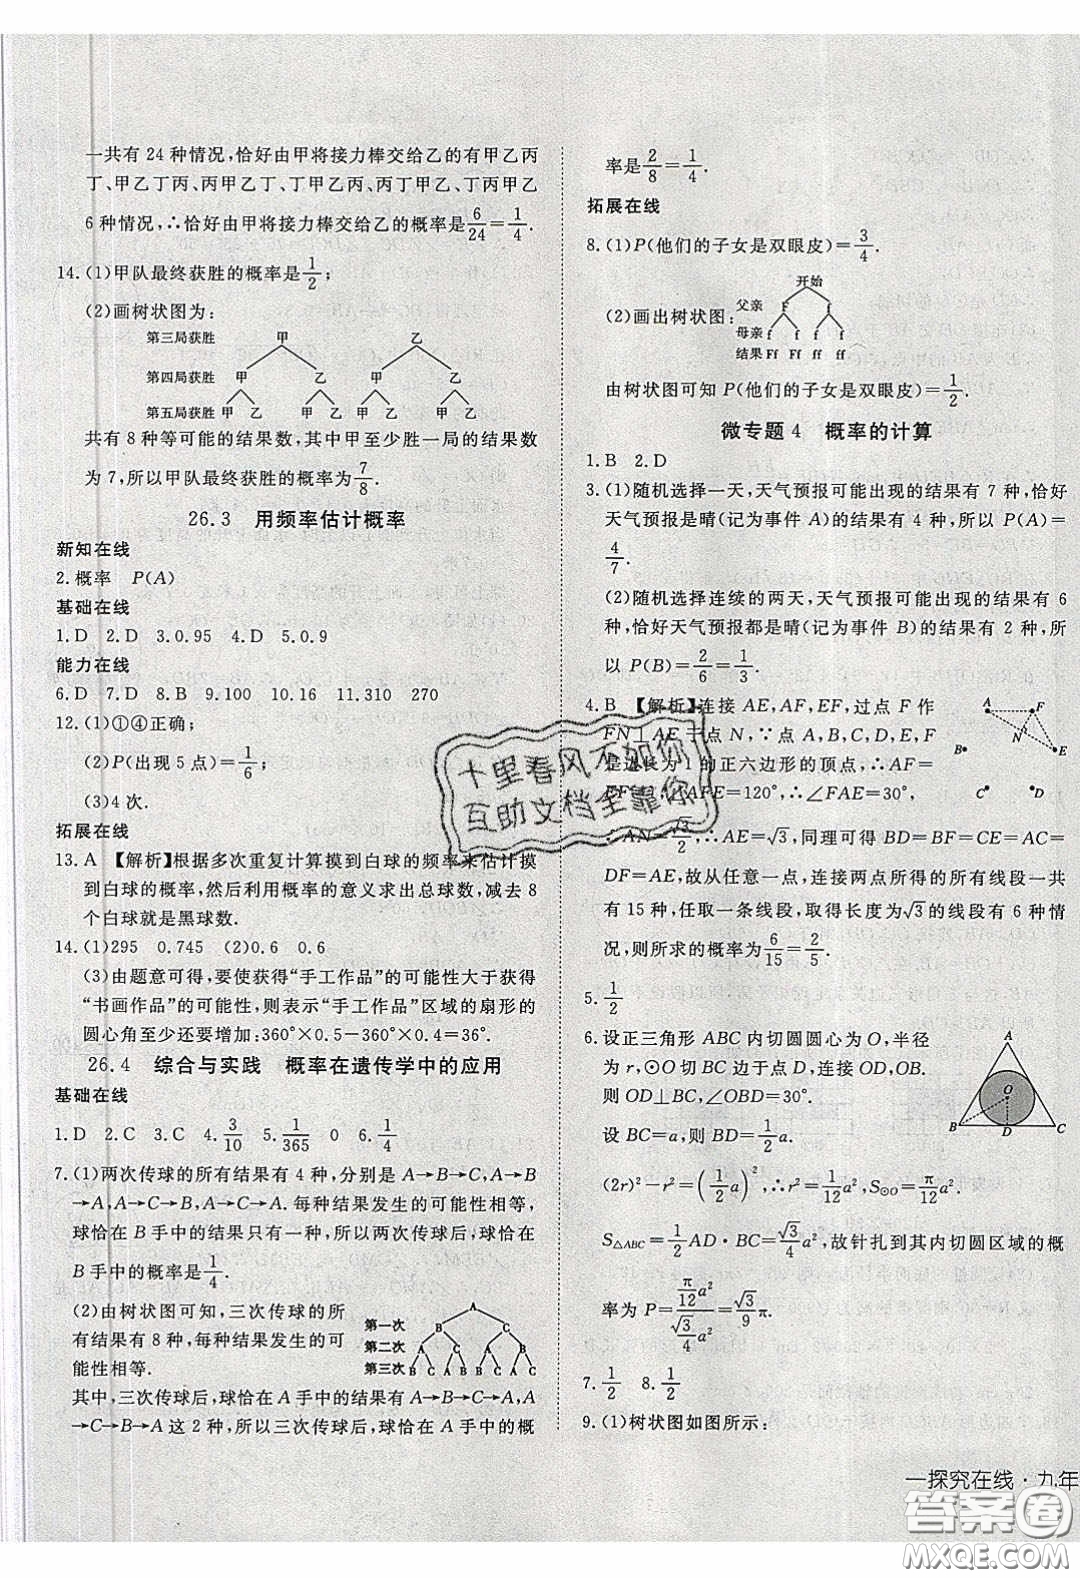 一共有 24 种情况,恰好由甲将接力棒交给乙的有甲乙丙
丁、甲乙丁丙、丙甲乙丁、丁甲乙丙、丙丁甲乙、丁丙甲乙
6 种情况,∴恰好由甲将接力棒交给乙的概率是6/24=1/4.
14.(1)甲队最终获胜的概率是1/2;
(2)画树状图为:
第三局获胜 甲 乙
第四局获胜 甲 乙 甲 乙
第五局获胜 甲 乙 甲 乙 甲 乙 甲 乙
共有 8 种等可能的结果数,其中甲至少胜一局的结果数
为 7,所以甲队最终获胜的概率为7/8.
26.3 用频率估计概率
新知在线
2.概率 P(A)
基础在线
1.D 2.D 3.0.95 4.D 5.0.9
能力在线
6.D 7.D 8.B 9.100 10.16 11.310 270
12.(1)①④正确;
(2)P(出现 5 点)=1/6;
(3)4 次.
拓展在线
13.A 【解析】根据多次重复计算摸到白球的频率来估计摸
到白球的概率,然后利用概率的意义求出总球数,减去 8
个白球就是黑球数.
14.(1)295 0.745 (2)0.6 0.6
(3)由题意可得,要使获得“手工作品”的可能性大于获得
“书画作品”的可能性,则表示“手工作品”区域的扇形的
圆心角至少还要增加:360°×0.5−360°×0.4=36°.
26.4 综合与实践 概率在遗传学中的应用
基础在线
1.D 2.C 3.C 4.3/10 5.1/365 0 6.1/4
7.(1)两次传球的所有结果有 4 种,分别是 A→B→C,A→B
→A,A→C→B,A→C→A.每种结果发生的可能性相等,
球恰在 B 手中的结果只有一种,所以两次传球后,球恰在
B 手中的概率是1/4.
(2)由树状图可知,三次传球的所
有结果有 8 种,每种结果发生的可
能性相等.
A
第一次 B C
第二次 A C A B
第三次 B C A B B C A C
其中,三次传球后,球恰在 A 手中的结果有 A→B→C→A,A
→C→B→A 这 2 种,所以三次传球后,球恰在 A 手中的概
率是2/8=1/4.
拓展在线
8.(1)P(他们的子女是双眼皮)=3/4.
(2)画出树状图:
开始
父亲 F f
母亲 f f f f
结果 Ff Ff ff ff
由树状图可知 P(他们的子女是双眼皮)=1/2.
微专题 4 概率的计算
1.B 2.D
3.(1)随机选择一天,天气预报可能出现的结果有 7 种,恰好
天气预报是晴(记为事件 A)的结果有 4 种,所以 P(A)=
4/7.
(2)随机选择连续的两天,天气预报可能出现的结果有 6
种,恰好天气预报都是晴(记为事件 B)的结果有 2 种,所
以 P(B)=2/6=1/3.
4.B 【解析】连接 AE,AF,EF,过点 F 作
FN⊥AE于点 N,∵点 A,B,C,D,E,F
是边长为 1 的正六边形的顶点,∴AF=
EF=1,∠AFE=120°,∴∠FAE=30°,
∴AN=√3/2,∴AE=√3,同理可得 BD=BF=CE=AC=
DF=AE,故从任意一点,连接两点所得的所有线段一共
有 15 种,任取一条线段,取得长度为√3的线段有 6 种情
况,则所求的概率为6/15=2/5.
A F
N
B E
C D
5.1/2
6.设正三角形 ABC 内切圆圆心为 O,半径
为 r,⊙O 切 BC 边于点 D,连接 OD,OB.
则 OD⊥BC,∠OBD=30°.
设 BC=a,则 BD=1/2a.
(2r)²−r²=(1/2a)²,∴r²=1/12a²,S⊙O=π/12a².
S△ABC=1/2AD·BC=√3/4a²,故针扎到其内切圆区域的概
率为 P=(π/12a²)/(√3/4a²)=√3/9π.
A
O
B D C
7.1/2 8.1/2
9.(1)树状图如图所示:
一探究在线·九年
十里春风不如你
互助文档全靠你
答案圈
MXQE.COM